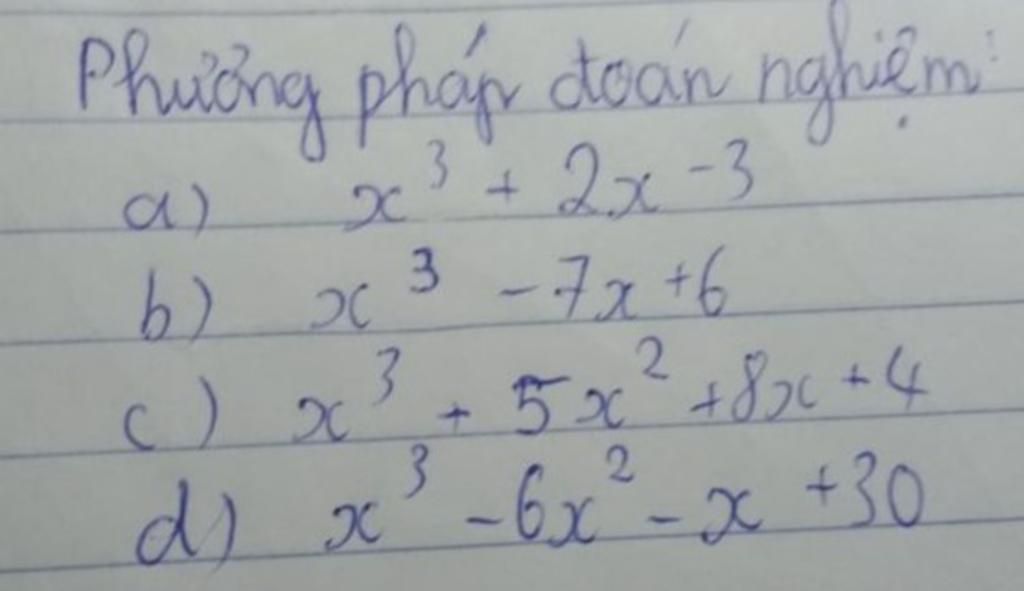 Phương pháp đoán nghiệm:
a) x³ + 2x - 3
b) x³ - 7x + 6
c) x³ + 5x² + 8x + 4
d) x³ - 6x² - x + 30